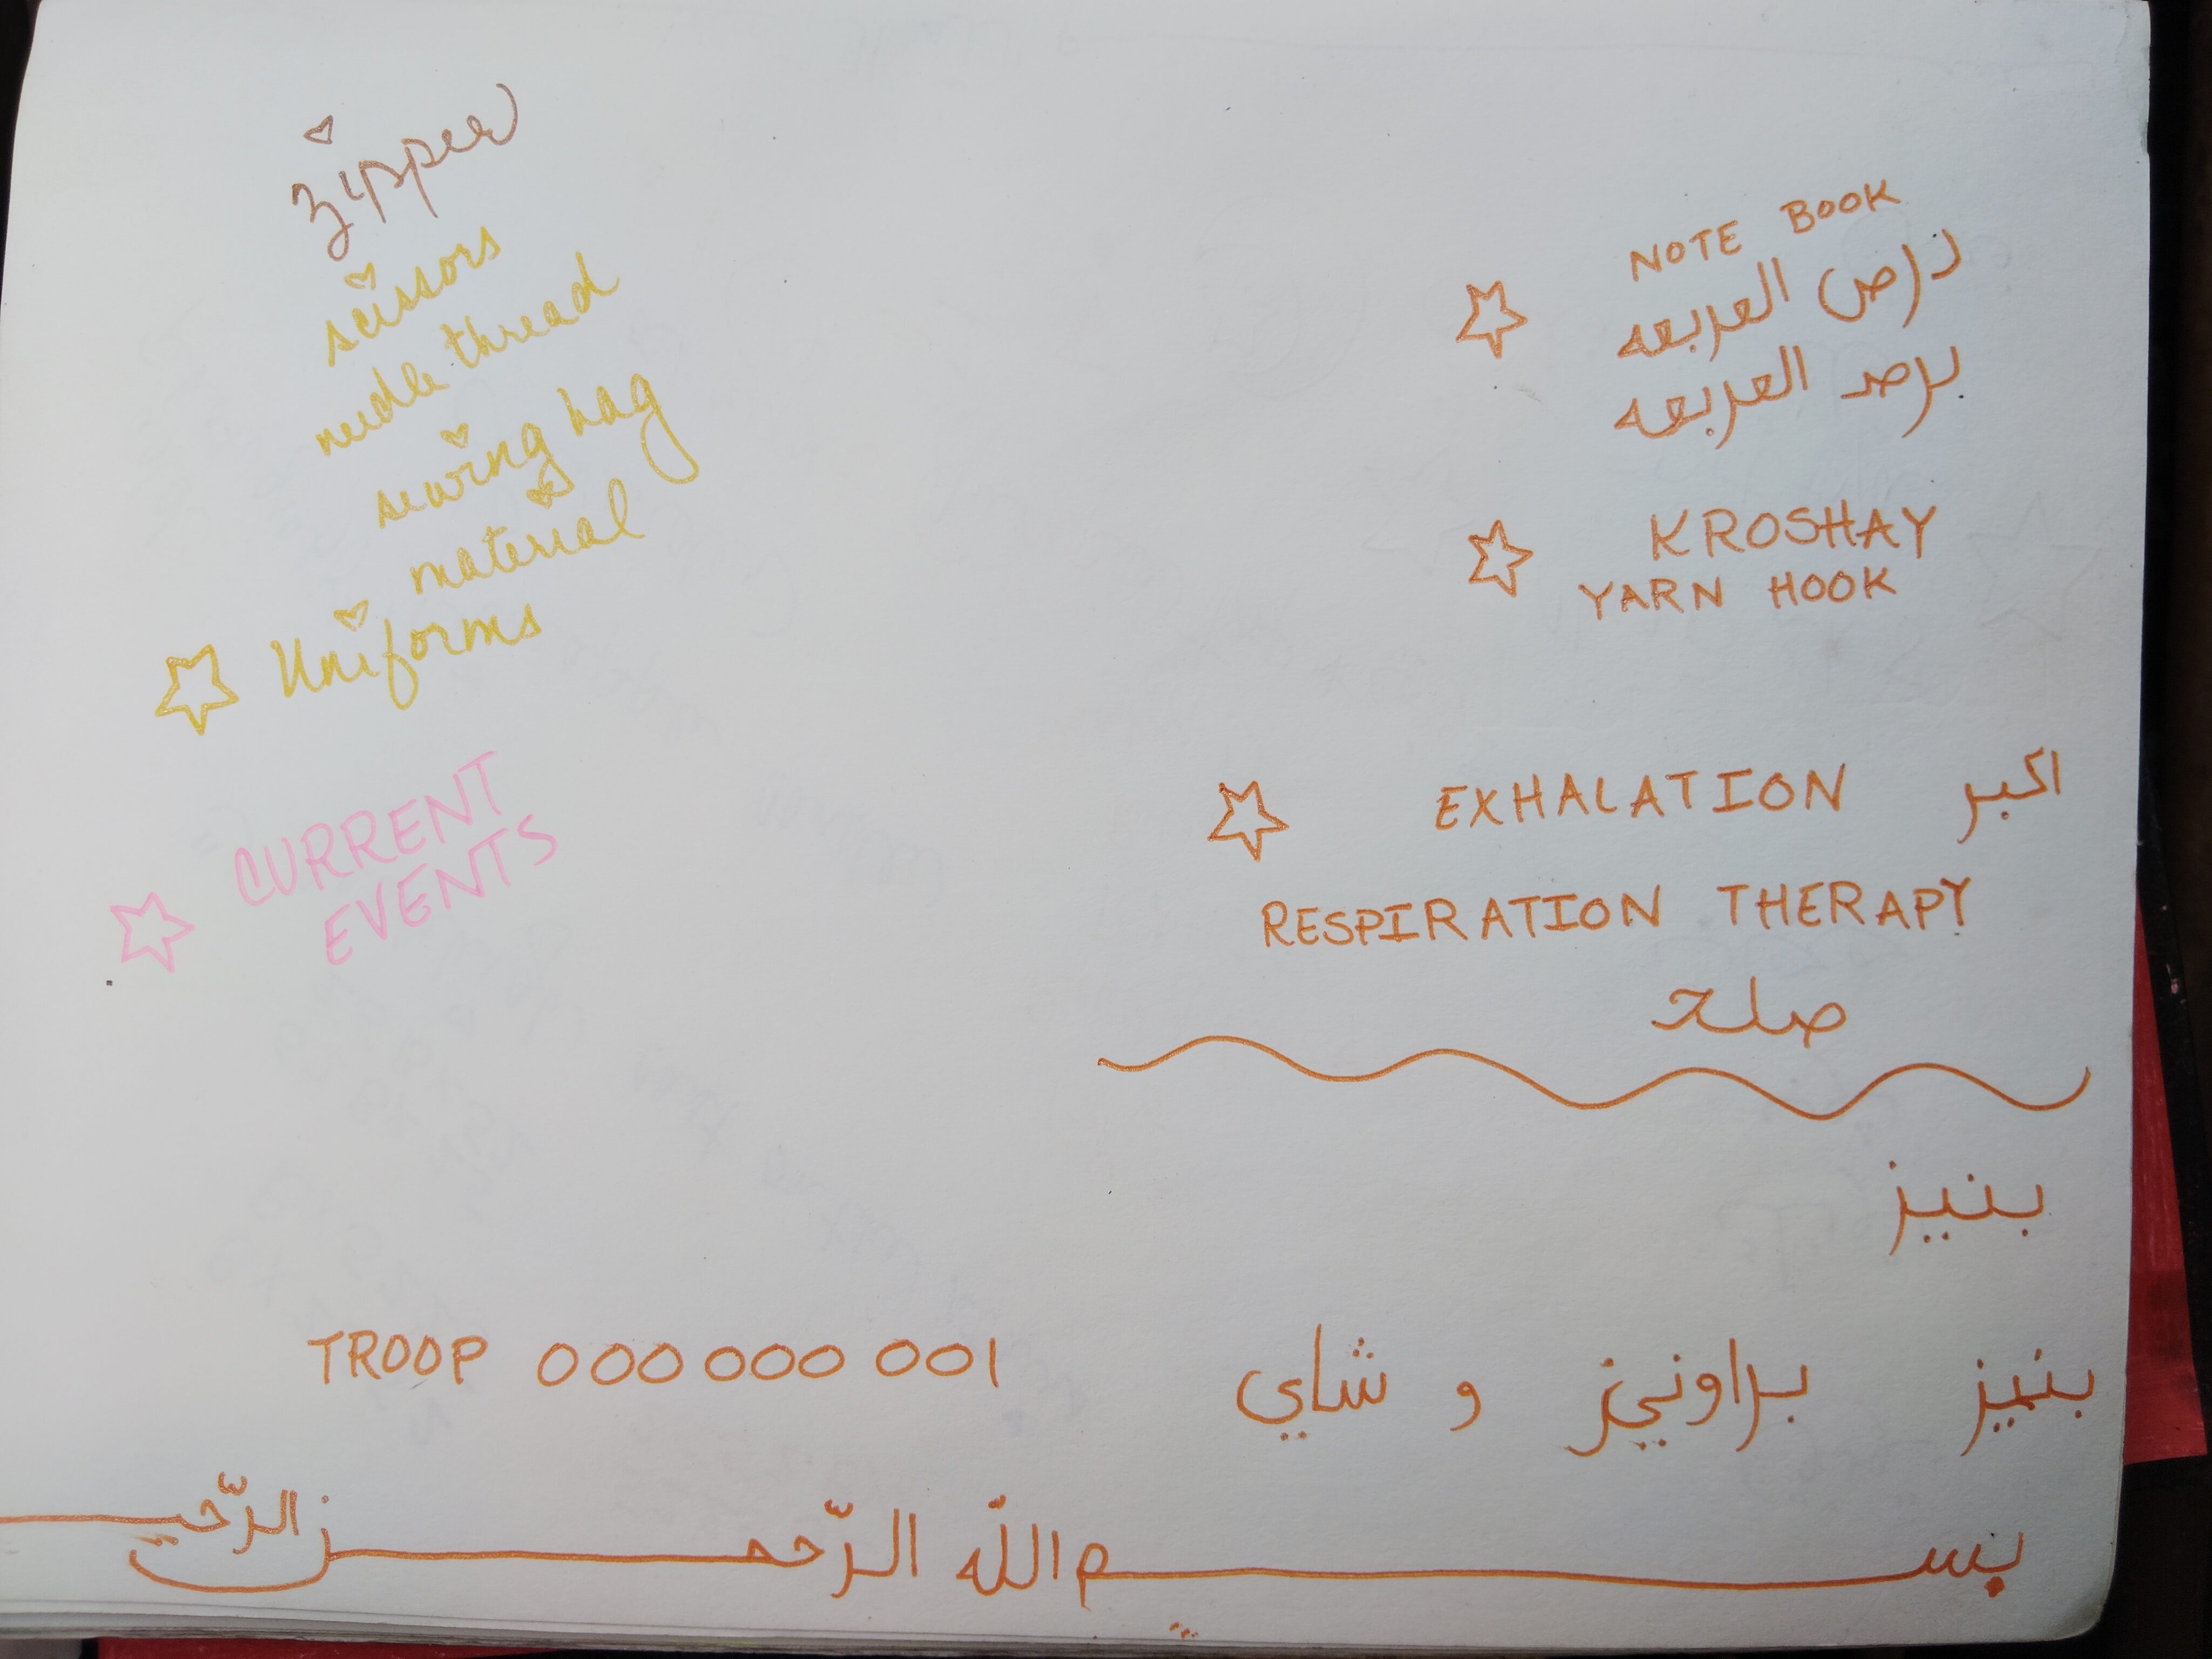 zipper
scissors
needle thread
sewing bag
material
Uniforms
CURRENT
EVENTS
NOTE BOOK
درص العربعه
برصد العربعه
KROSHAY
YARN HOOK
EXHALATION اكبر
RESPIRATION THERAPY
صلح
بنيز
TROOP 000 000 001
بنيز براونيز و شاي
بسم الله الرّحمن الرّحيـ